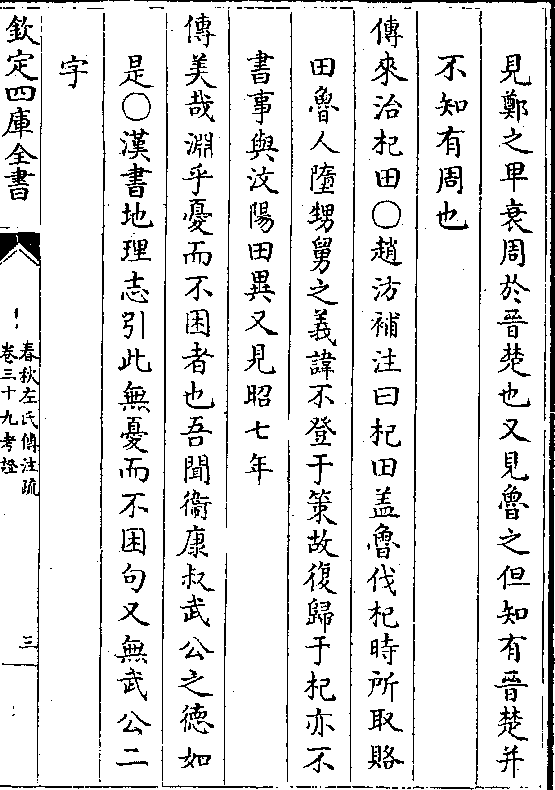 見鄭之卑衰周於晉楚也又見魯之但知有晉楚并
不知有周也
傳來治杞田○趙汸補注曰杞田盖魯伐杞時所取賂
田魯人隳甥舅之義諱不登于策故復歸于杞亦不
書事與汶陽田異又見昭七年
傳美哉淵乎憂而不困者也吾聞衞康叔武公之德如
是○漢書地理志引此無憂而不困句又無武公二
字
欽定四庫全書
春秋左氏傳注疏
卷三十九考證
三